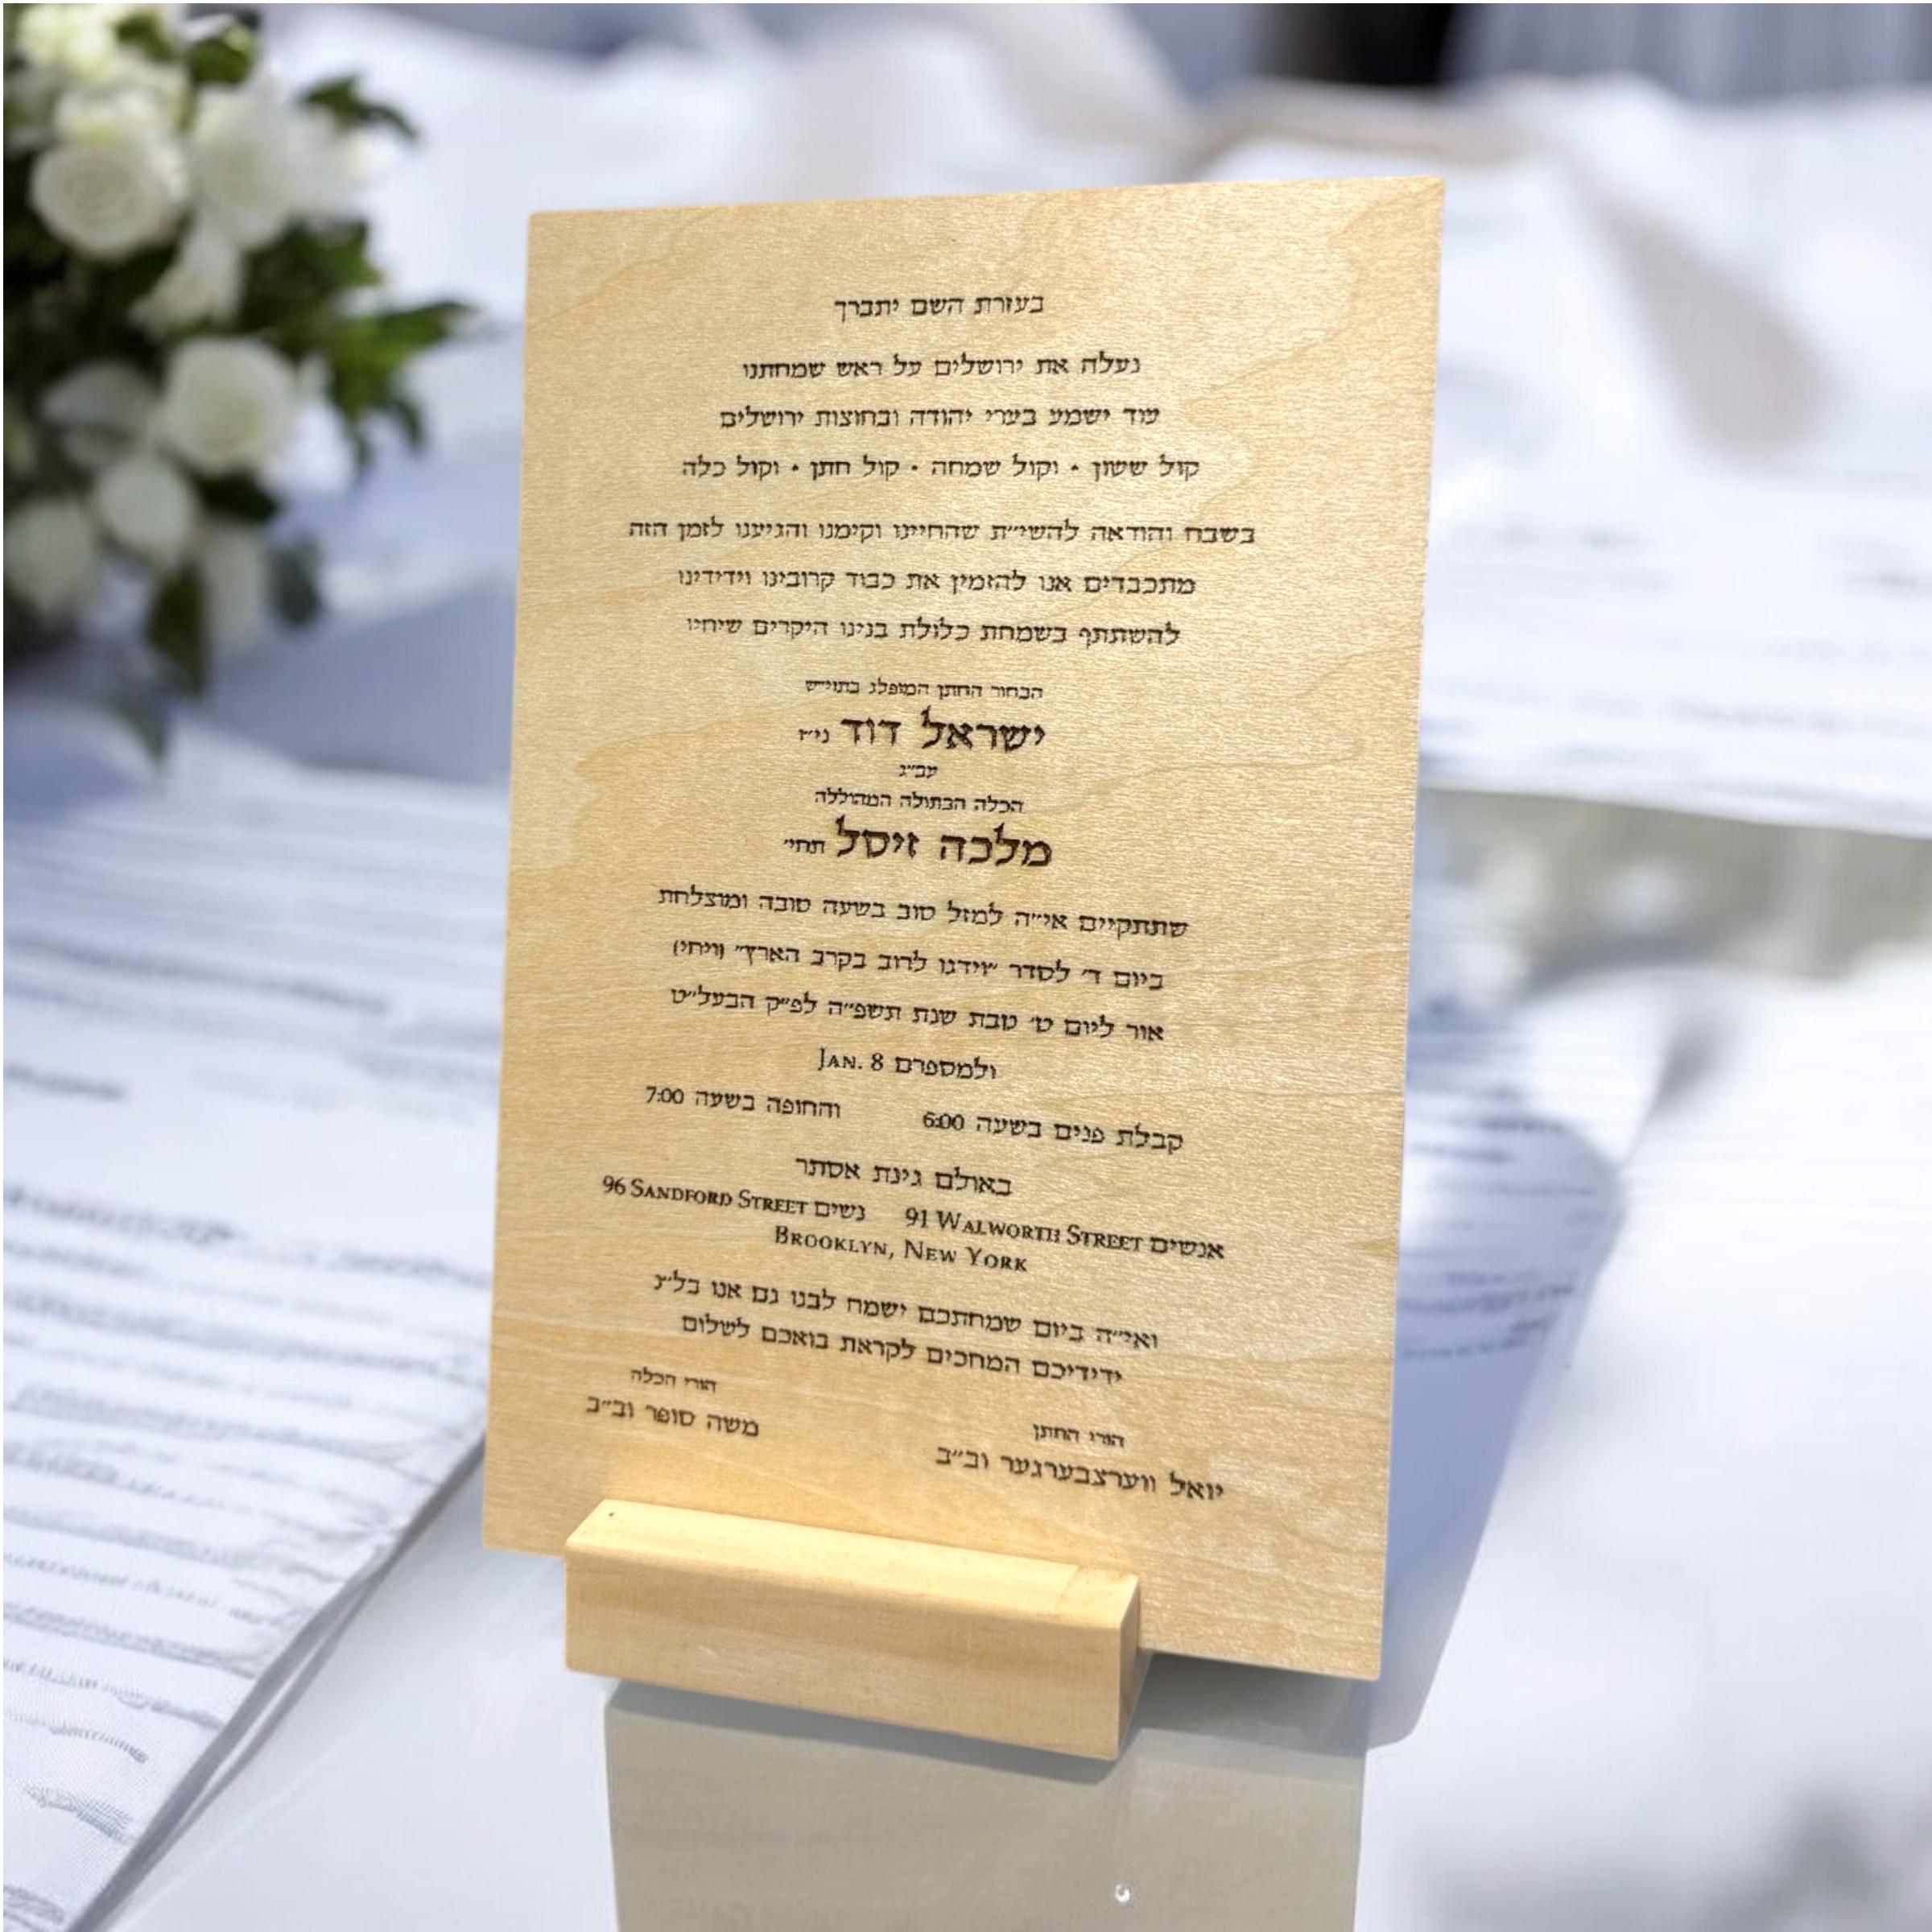 בעזרת השם יתברך
נעלה את ירושלים על ראש שמחתנו
עוד ישמע בערי יהודה ובחוצות ירושלים
קול ששון • וקול שמחה • קול חתן • וקול כלה
בשבח והודאה להשי״ת שהחיינו וקימנו והגיענו לזמן הזה
מתכבדים אנו להזמין את כבוד קרובינו וידידינו
להשתתף בשמחת כלולת בנינו היקרים שיחיו
הבחור החתן המופלג בתוי״ש
ישראל דוד ני״ו
עב״ג
הכלה הבתולה המהוללה
מלכה זיסל תחי׳
שתתקיים אי״ה למזל טוב בשעה טובה ומוצלחת
ביום ד׳ לסדר ״וידגו לרוב בקרב הארץ״ (ויחי)
אור ליום ט׳ טבת שנת תשפ״ה לפ״ק הבעל״ט
ולמספרם Jan. 8
קבלת פנים בשעה 6:00 והחופה בשעה 7:00
באולם גינת אסתר
אנשים 91 Walworth Street נשים 96 Sandford Street
Brooklyn, New York
ואי״ה ביום שמחתכם ישמח לבנו גם אנו בל״נ
ידידיכם המחכים לקראת בואכם לשלום
הורי החתן
יואל ווערצבערגער וב״ב
הורי הכלה
משה סופר וב״ב